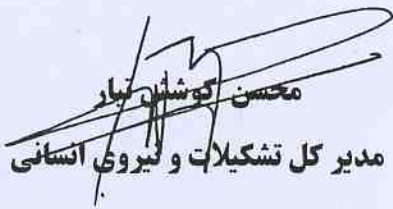 محسن کوشش تبار
مدیر کل تشکیلات و نیروی انسانی